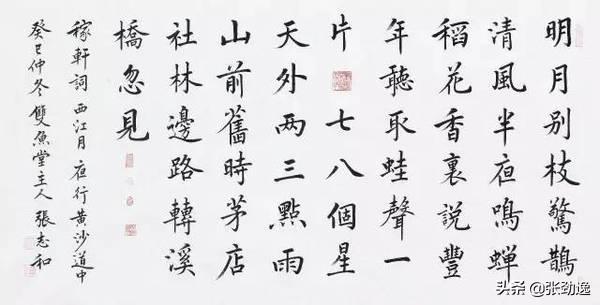 明月别枝驚鵲
清風半夜鳴蟬
稻花香裏説豐
年聽取蛙聲一
片 七八個星
天外两三點雨
山前舊時茅店
社林邊路轉溪
橋忽見
稼軒詞 西江月 夜行黄沙道中
癸巳仲冬 雙魚堂主人 張志和
头条 @张劲逸